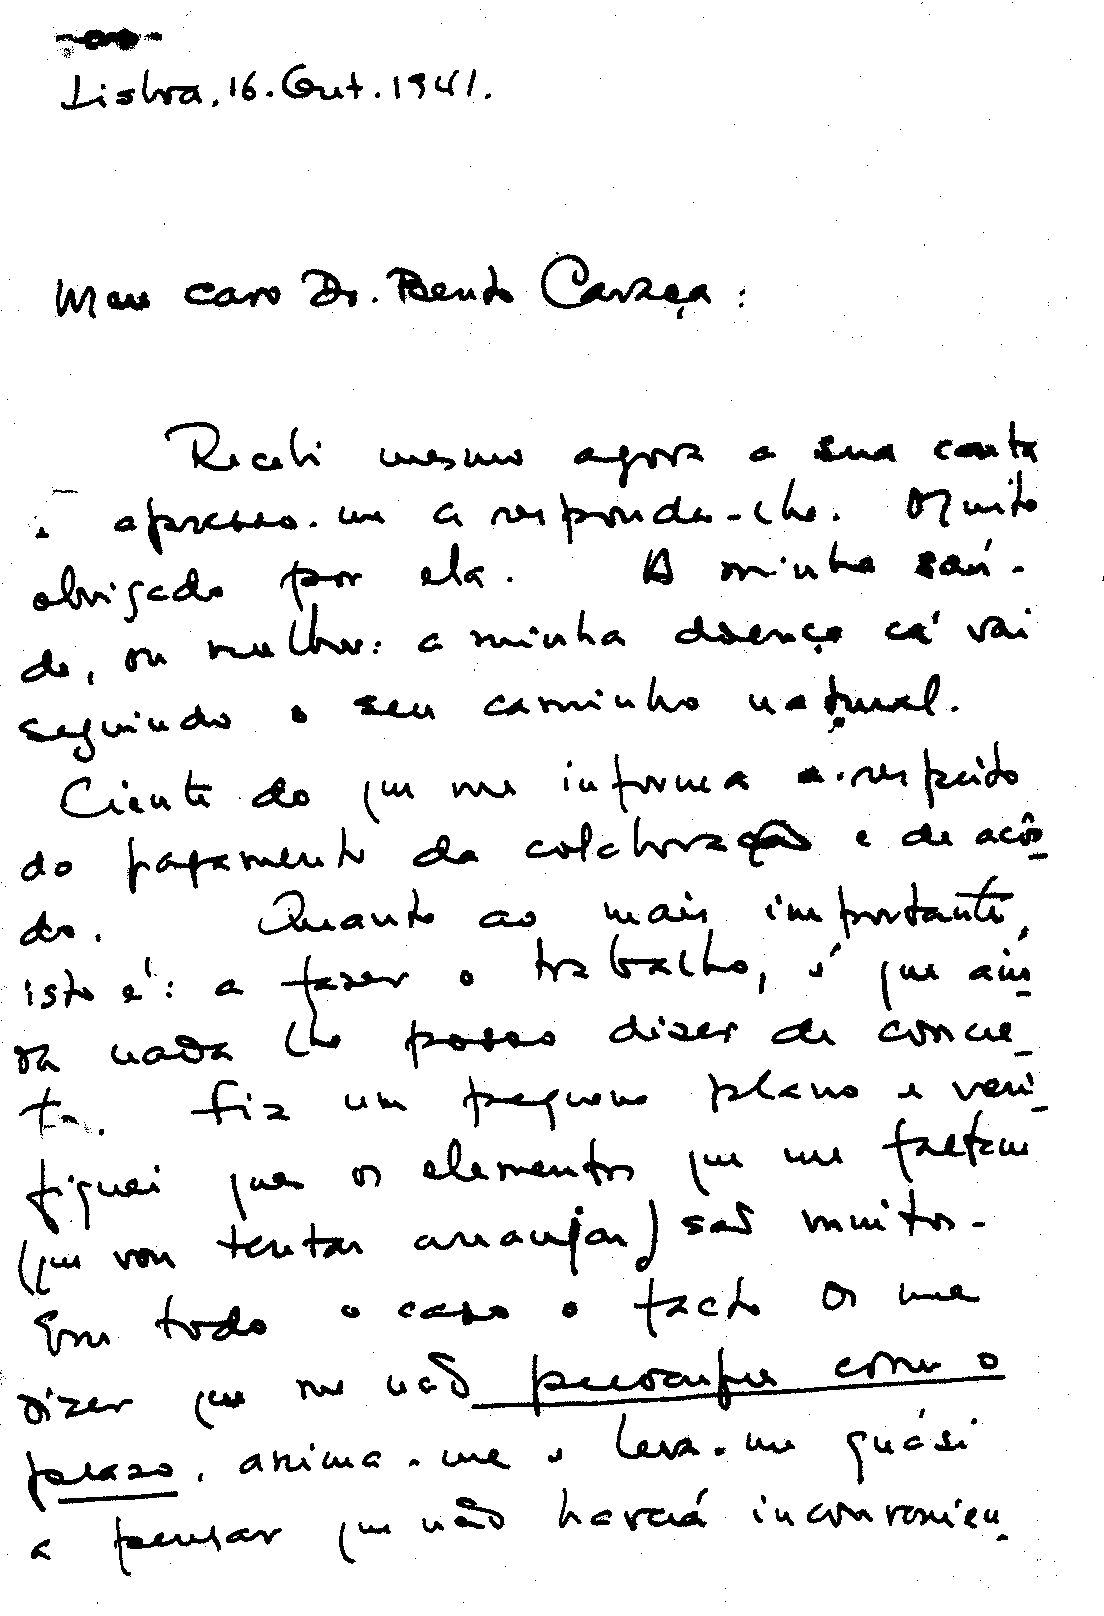 Lisboa, 16. Out. 1941.
Meu caro Dr. Bento Caraça:
Recebi mesmo agora a sua carta
e apresso-me a responder-lhe. Muito
obrigado por ela. A minha saú-
de, ou melhor: a minha doença cá vai
seguindo o seu caminho natural.
Ciente do que me informa a-respeito
do pagamento da colaboração e de acôr-
do. Quanto ao mais importante,
isto é: a fazer o trabalho, é que ain-
da nada lhe posso dizer de concre-
to. Fiz um pequeno plano e veri-
fiquei que os elementos que me faltam
(que vou tentar arranjar) são muitos.
Em todo o caso o facto de me
dizer que me não preocupe com o
prazo, anima-me e leva-me quási
a pensar que não haverá inconvenien-